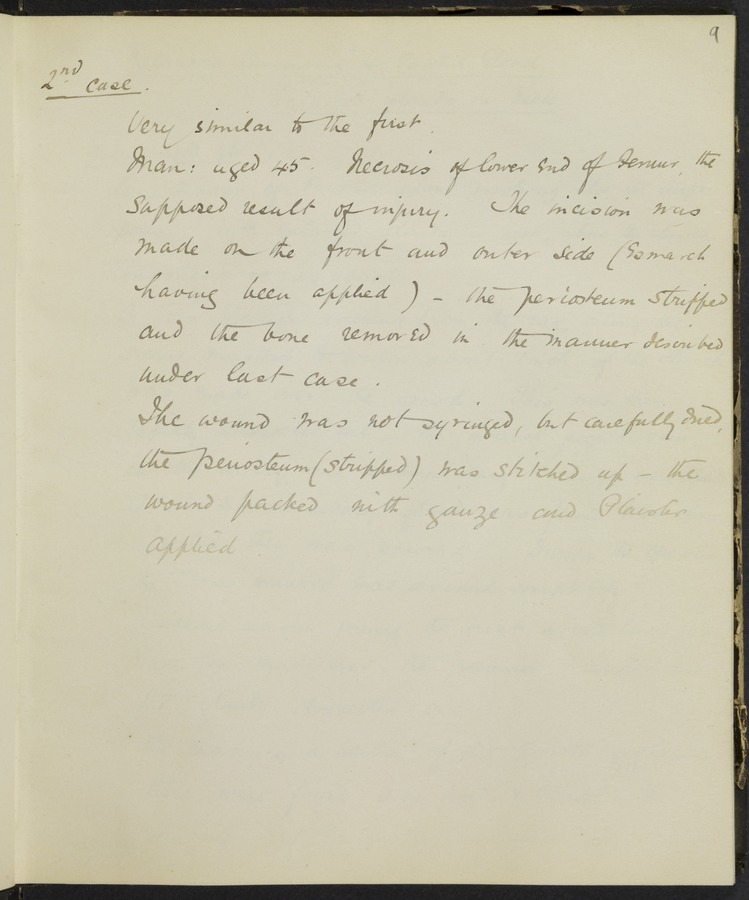 9
2nd case.
Very similar to the first.
Man: aged 45. Necrosis of lower end of Femur, the
supposed result of injury. The incision was
made on the front and outer side (Esmarch
having been applied) - the periosteum stripped
and the bone removed in the manner described
under last case.
The wound was not syringed, but carefully dried,
the periosteum (stripped) was stitched up - the
wound packed with gauze and Plaister
applied